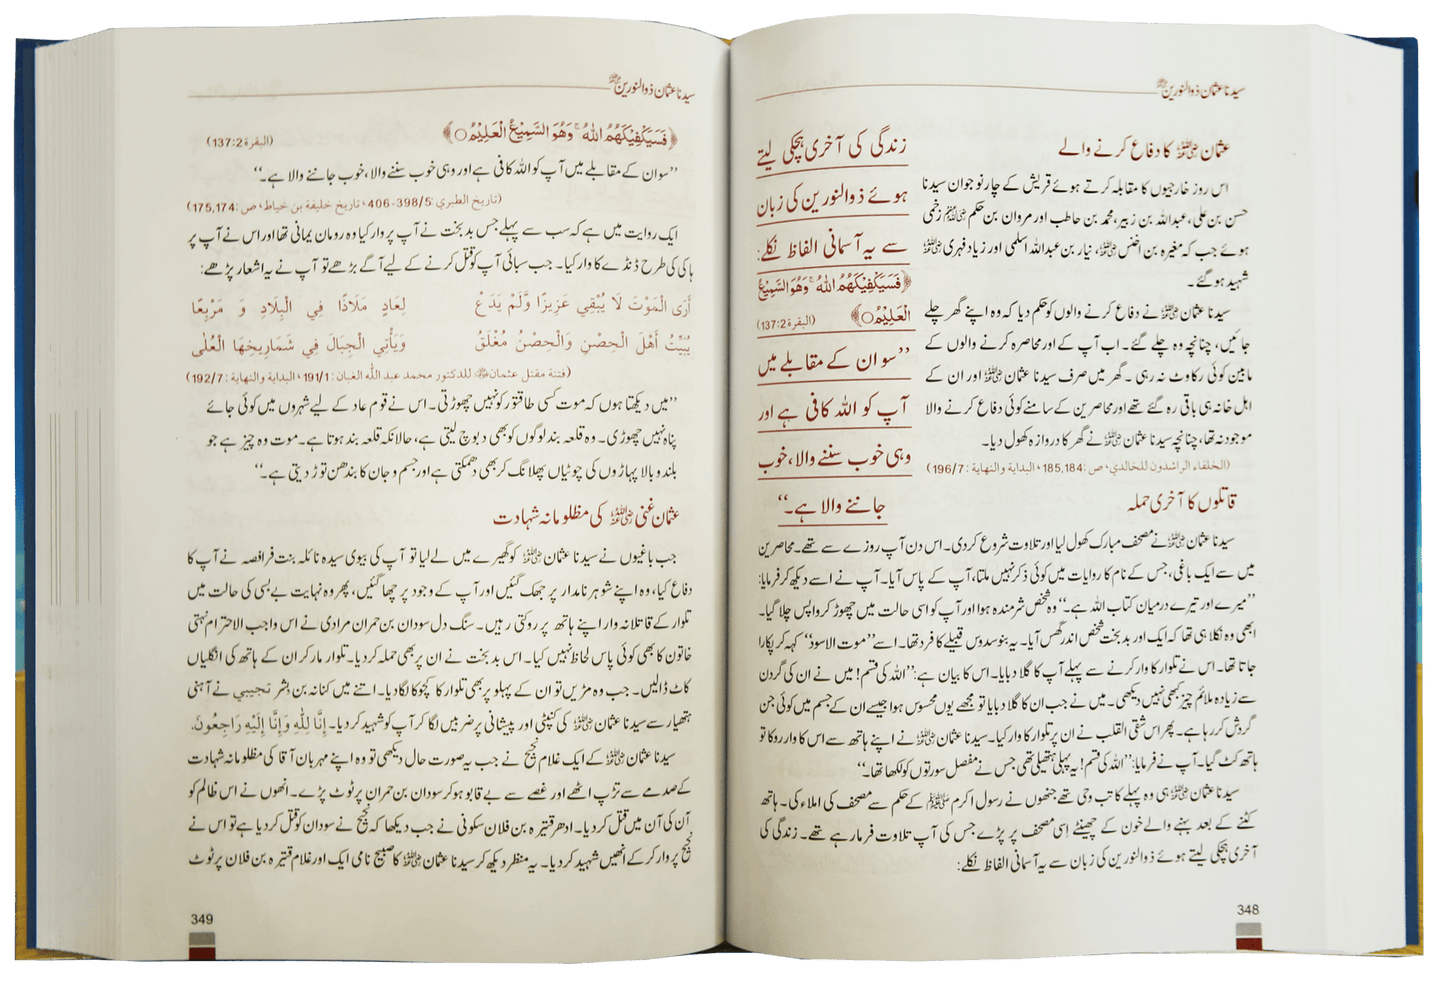 سیدنا عثمان ذوالنورین رضی اللہ عنہ
عثمان رضی اللہ عنہ کا دفاع کرنے والے
اس روز خارجیوں کا مقابلہ کرتے ہوئے قریش کے چار نوجوان سیدنا
حسن بن علی، عبداللہ بن زبیر، محمد بن حاطب اور مروان بن حکم رضی اللہ عنہم زخمی
ہوئے جب کہ مغیرہ بن اخنس رضی اللہ عنہ، نیار بن عبداللہ اسلمی اور زیاد فہری رضی اللہ عنہ
شہید ہو گئے۔
سیدنا عثمان رضی اللہ عنہ نے دفاع کرنے والوں کو حکم دیا کہ وہ اپنے گھر چلے
جائیں، چنانچہ وہ چلے گئے۔ اب آپ کے اور محاصرہ کرنے والوں کے
مابین کوئی رکاوٹ نہ رہی۔ گھر میں صرف سیدنا عثمان رضی اللہ عنہ اور ان کے
اہل خانہ ہی باقی رہ گئے تھے اور محاصرین کے سامنے کوئی دفاع کرنے والا
موجود نہ تھا، چنانچہ سیدنا عثمان رضی اللہ عنہ نے گھر کا دروازہ کھول دیا۔
(الخلفاء الراشدون للخالدي، ص: 185,184، البداية والنهاية: 196/7)
زندگی کی آخری ہچکی لیتے
ہوئے ذوالنورین کی زبان
سے یہ آسمانی الفاظ نکلے:
﴿فَسَيَكْفِيكَهُمُ اللّٰهُ ۚ وَهُوَ السَّمِيْعُ
الْعَلِيْمُ﴾ (البقرة 137:2)
’’سو ان کے مقابلے میں
آپ کو اللہ کافی ہے اور
وہی خوب سننے والا، خوب
جاننے والا ہے۔‘‘
قاتلوں کا آخری حملہ
سیدنا عثمان رضی اللہ عنہ نے مصحف مبارک کھول لیا اور تلاوت شروع کر دی۔ اس دن آپ روزے سے تھے۔ محاصرین
میں سے ایک باغی، جس کے نام کا روایات میں کوئی ذکر نہیں ملتا، آپ کے پاس آیا۔ آپ نے اسے دیکھ کر فرمایا:
’’میرے اور تیرے درمیان کتاب اللہ ہے۔‘‘ وہ شخص شرمندہ ہوا اور آپ کو اسی حالت میں چھوڑ کر واپس چلا گیا۔
ابھی وہ نکلا ہی تھا کہ ایک اور بدبخت شخص اندر گھس آیا۔ یہ بنو سدوس قبیلے کا فرد تھا۔ اسے ’’موت الاسود‘‘ کہہ کر پکارا
جاتا تھا۔ اس نے تلوار کا وار کرنے سے پہلے آپ کا گلا دبایا۔ اس کا بیان ہے: ’’اللہ کی قسم! میں نے ان کی گردن
سے زیادہ ملائم چیز کبھی نہیں دیکھی۔ میں نے جب ان کا گلا دبایا تو مجھے یوں محسوس ہوا جیسے ان کے جسم میں کوئی جن
گردش کر رہا ہے۔ پھر اس شقی القلب نے ان پر تلوار کا وار کیا۔ سیدنا عثمان رضی اللہ عنہ نے اپنے ہاتھ سے اس کا وار روکا تو
ہاتھ کٹ گیا۔ آپ نے فرمایا: ’’اللہ کی قسم! یہ پہلی ہتھیلی تھی جس نے مفصل سورتوں کو لکھا تھا۔‘‘
سیدنا عثمان رضی اللہ عنہ ہی وہ پہلے کاتب وحی تھے جنھوں نے رسول اکرم ﷺ کے حکم سے مصحف کی املاء کی۔ ہاتھ
کٹنے کے بعد بہنے والے خون کے چھینٹے اِسی مصحف پر پڑے جس کی آپ تلاوت فرما رہے تھے۔ زندگی کی
آخری ہچکی لیتے ہوئے ذوالنورین کی زبان سے یہ آسمانی الفاظ نکلے:
348
سیدنا عثمان ذوالنورین رضی اللہ عنہ
﴿فَسَيَكْفِيكَهُمُ اللّٰهُ ۚ وَهُوَ السَّمِيْعُ الْعَلِيْمُ﴾ (البقرة 137:2)
’’سو ان کے مقابلے میں آپ کو اللہ کافی ہے اور وہی خوب سننے والا، خوب جاننے والا ہے۔‘‘
(تاريخ الطبري: 398/5-406، تاريخ خليفة بن خياط، ص: 175,174)
ایک روایت میں ہے کہ سب سے پہلے جس بدبخت نے آپ پر وار کیا وہ رومان یمانی تھا اور اس نے آپ پر
ہاکی کی طرح ڈنڈے کا وار کیا۔ جب سبائی آپ کو قتل کرنے کے لیے آگے بڑھے تو آپ نے یہ اشعار پڑھے:
أَرَى الْمَوْتَ لَا يُبْقِي عَزِيزًا وَّلَمْ يَدَعْ لِعَادٍ مَلَاذًا فِي الْبِلَادِ وَ مَرْبِعًا
يُبَيِّتُ أَهْلَ الْحِصْنِ وَالْحِصْنُ مُغْلَقٌ وَيَأْتِي الْجِبَالَ فِي شَمَارِيخِهَا الْعُلٰى
(فتنة مقتل عثمان رضی اللہ عنہ للدكتور محمد عبد الله الغبان: 191/1، البداية والنهاية: 192/7)
’’میں دیکھتا ہوں کہ موت کسی طاقتور کو نہیں چھوڑتی۔ اس نے قوم عاد کے لیے شہروں میں کوئی جائے
پناہ نہیں چھوڑی۔ وہ قلعہ بند لوگوں کو بھی دبوچ لیتی ہے، حالانکہ قلعہ بند ہوتا ہے۔ موت وہ چیز ہے جو
بلند و بالا پہاڑوں کی چوٹیاں پھلانگ کر بھی دھمکتی ہے اور جسم و جان کا بندھن توڑ دیتی ہے۔‘‘
عثمان غنی رضی اللہ عنہ کی مظلومانہ شہادت
جب باغیوں نے سیدنا عثمان رضی اللہ عنہ کو گھیرے میں لے لیا تو آپ کی بیوی سیدہ نائلہ بنت فرافصہ نے آپ کا
دفاع کیا، وہ اپنے شوہر نامدار پر جھک گئیں اور آپ کے وجود پر چھا گئیں، پھر وہ نہایت بے بسی کی حالت میں
تلوار کے قاتلانہ وار اپنے ہاتھ پر روکتی رہیں۔ سنگ دل سودان بن حمران مرادی نے اس واجب الاحترام نہتی
خاتون کا بھی کوئی پاس لحاظ نہیں کیا۔ اس بدبخت نے ان پر بھی حملہ کر دیا۔ تلوار مار کر ان کے ہاتھ کی انگلیاں
کاٹ ڈالیں۔ جب وہ مڑیں تو ان کے پہلو پر بھی تلوار کا کچوکا لگا دیا۔ اتنے میں کنانہ بن بشر تجیبی نے آہنی
ہتھیار سے سیدنا عثمان رضی اللہ عنہ کی کنپٹی اور پیشانی پر ضربیں لگا کر آپ کو شہید کر دیا۔ إِنَّا لِلّٰهِ وَإِنَّا إِلَيْهِ رَاجِعُونَ.
سیدنا عثمان رضی اللہ عنہ کے ایک غلام نجیح نے جب یہ صورت حال دیکھی تو وہ اپنے مہربان آقا کی مظلومانہ شہادت
کے صدمے سے تڑپ اٹھے اور غصے سے بے قابو ہو کر سودان بن حمران پر ٹوٹ پڑے۔ انھوں نے اس ظالم کو
آن کی آن میں قتل کر دیا۔ ادھر قتیرہ بن فلان سکونی نے جب دیکھا کہ نجیح نے سودان کو قتل کر دیا ہے تو اس نے
نجیح پر وار کر کے انھیں شہید کر دیا۔ یہ منظر دیکھ کر سیدنا عثمان رضی اللہ عنہ کا صبیح نامی ایک اور غلام قتیرہ بن فلان پر ٹوٹ
349